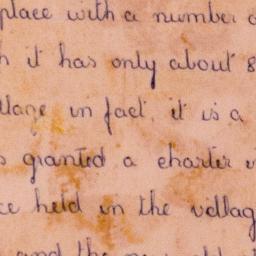 place with a number
it has only about 8
in fact, it is a
granted a charter
held in the villag
and the